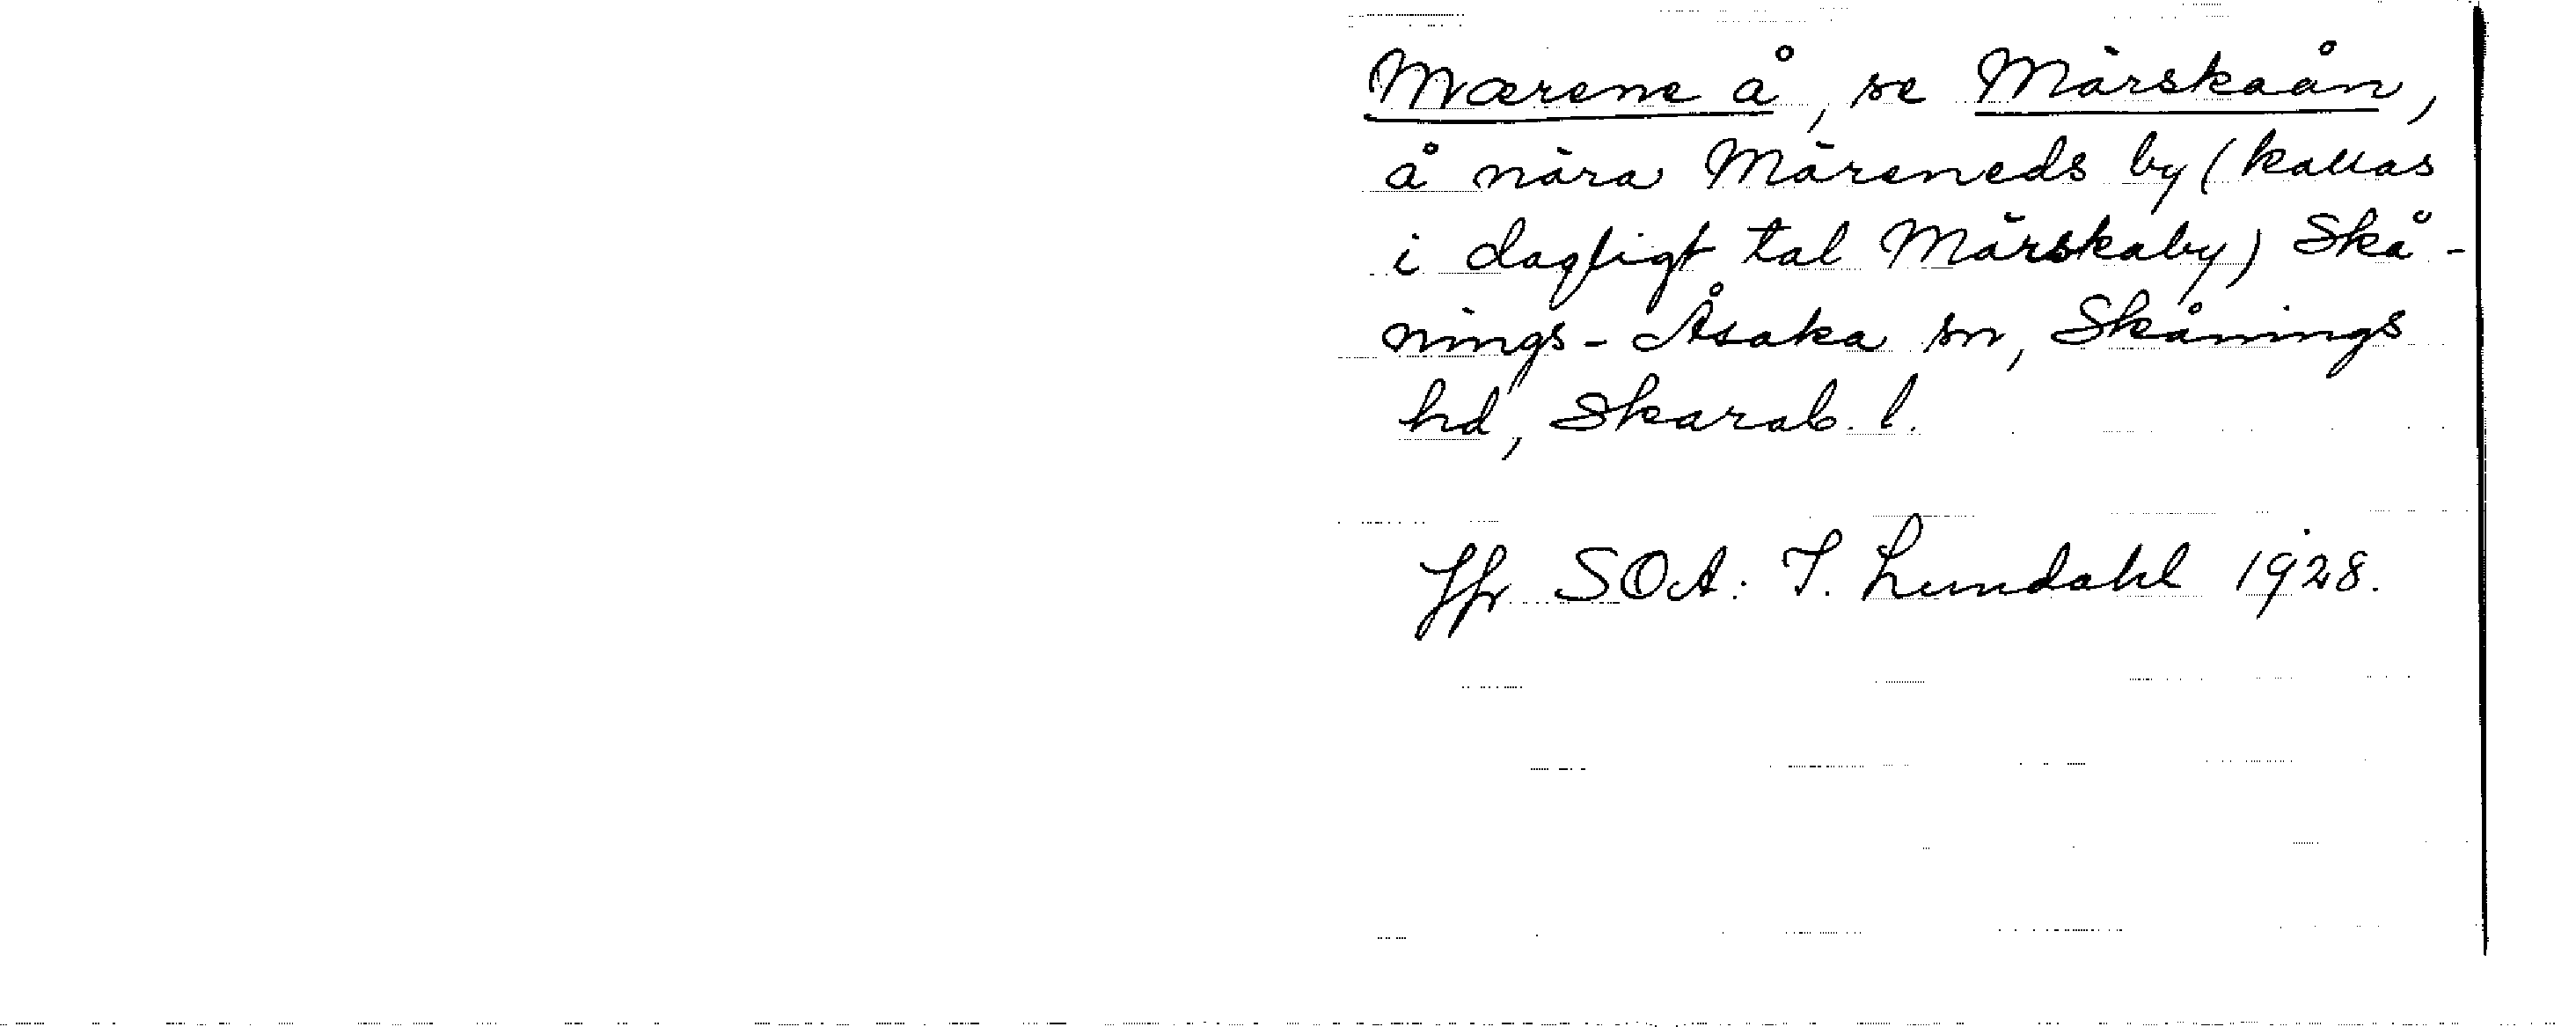 Mærene å, se Märskaån,
å nära Märeneds by (kallas
i dagligt tal Märskaby) Skå-
nings-Åsaka sn, Skånings
hd, Skarab. l.
Jfr SOA: I. Lundahl 1928.